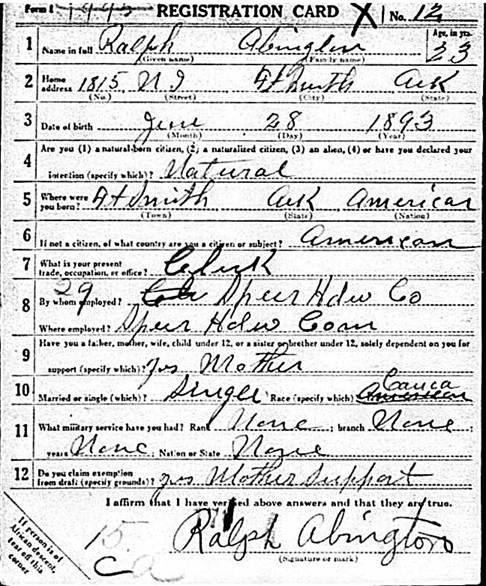 Form 1 REGISTRATION CARD X No. 12
1 Name in full Ralph Abington Age, in yrs. 23
(Given name) (Family name)
2 Home address 1815 N I Ft Smith Ark
(No.) (Street) (City) (State)
3 Date of birth June 28 1893
(Month) (Day) (Year)
4 Are you (1) a natural-born citizen, (2) a naturalized citizen, (3) an alien, (4) or have you declared your
intention (specify which)? Natural
5 Where were you born? Ft Smith Ark American
(Town) (State) (Nation)
6 If not a citizen, of what country are you a citizen or subject? American
7 What is your present trade, occupation, or office? Clerk
29
8 By whom employed? Speer Hdw Co
Where employed? Speer Hdw Com
9 Have you a father, mother, wife, child under 12, or a sister or brother under 12, solely dependent on you for
support (specify which)? yes Mother
10 Married or single (which)? Single Race (specify which)? Cauca
American
11 What military service have you had? Rank None ; branch None ;
years None ; Nation or State None
12 Do you claim exemption from draft (specify grounds)? yes Mother Support
I affirm that I have verified above answers and that they are true.
15
Ralph Abington
(Signature or mark)
If person is of
African descent,
tear off this
corner